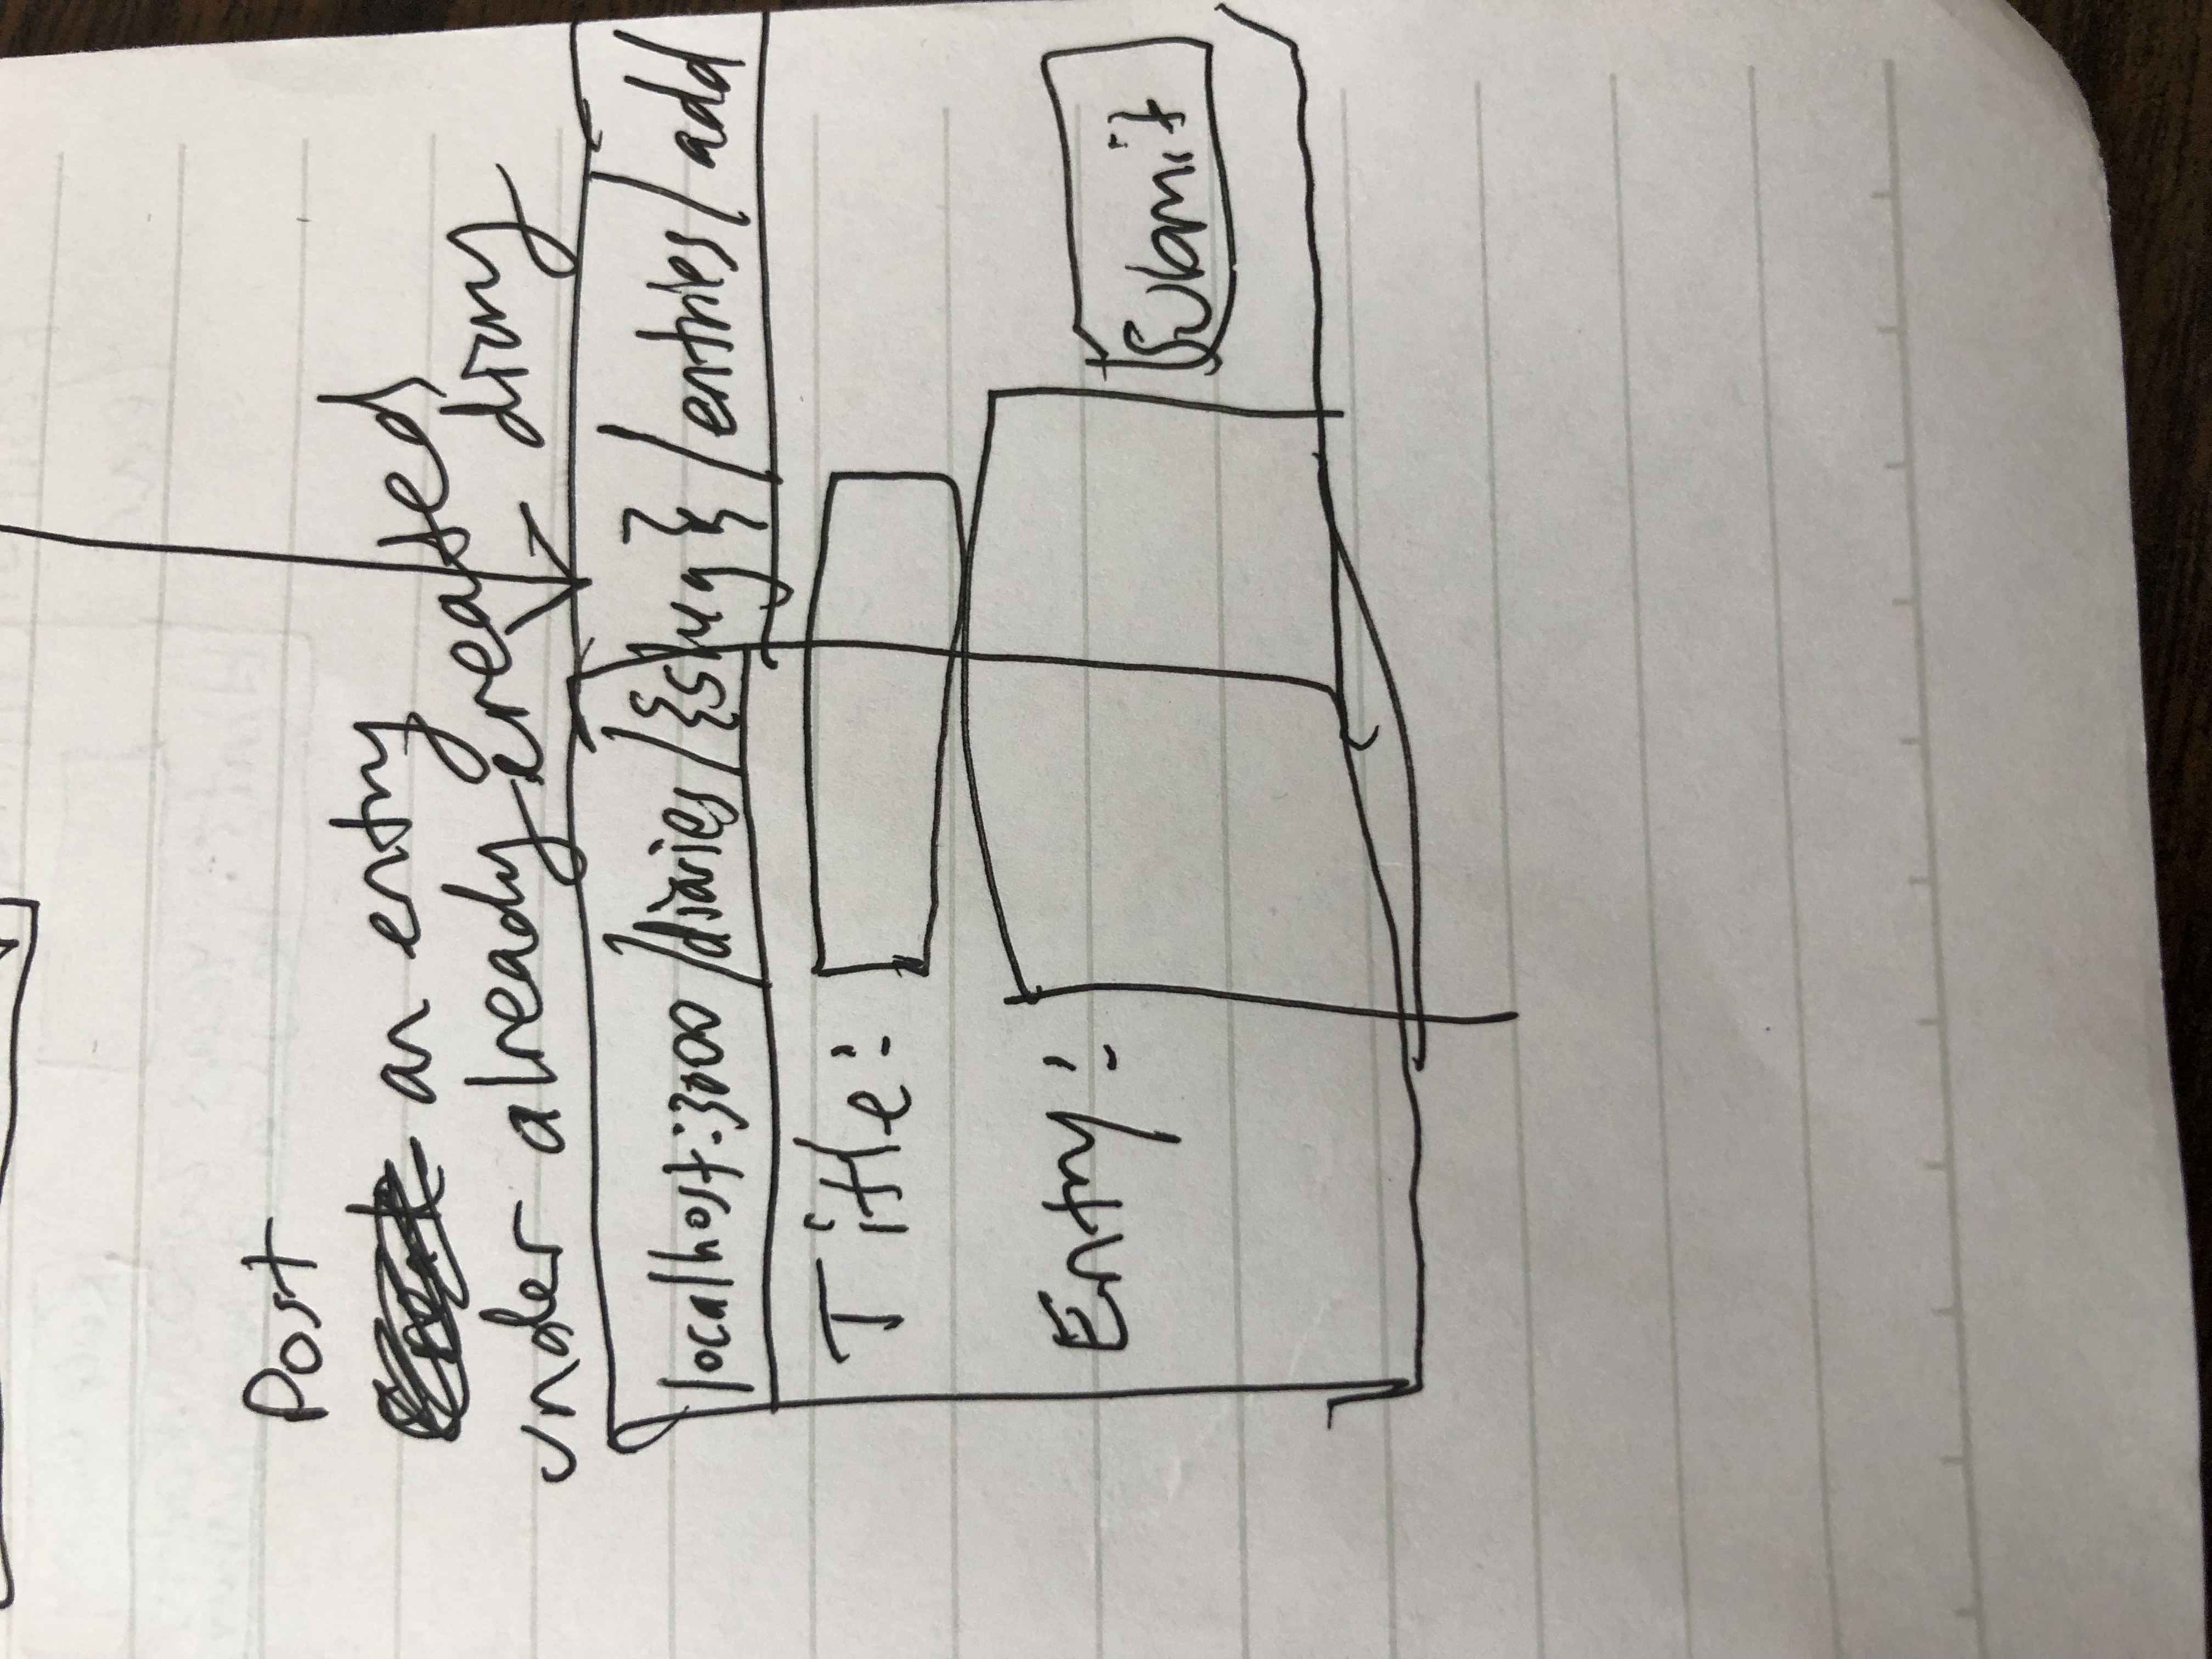 Post
an entry
under already created
diary
localhost:3000/diaries/{slug}/entries/add
Title:
Entry:
Submit